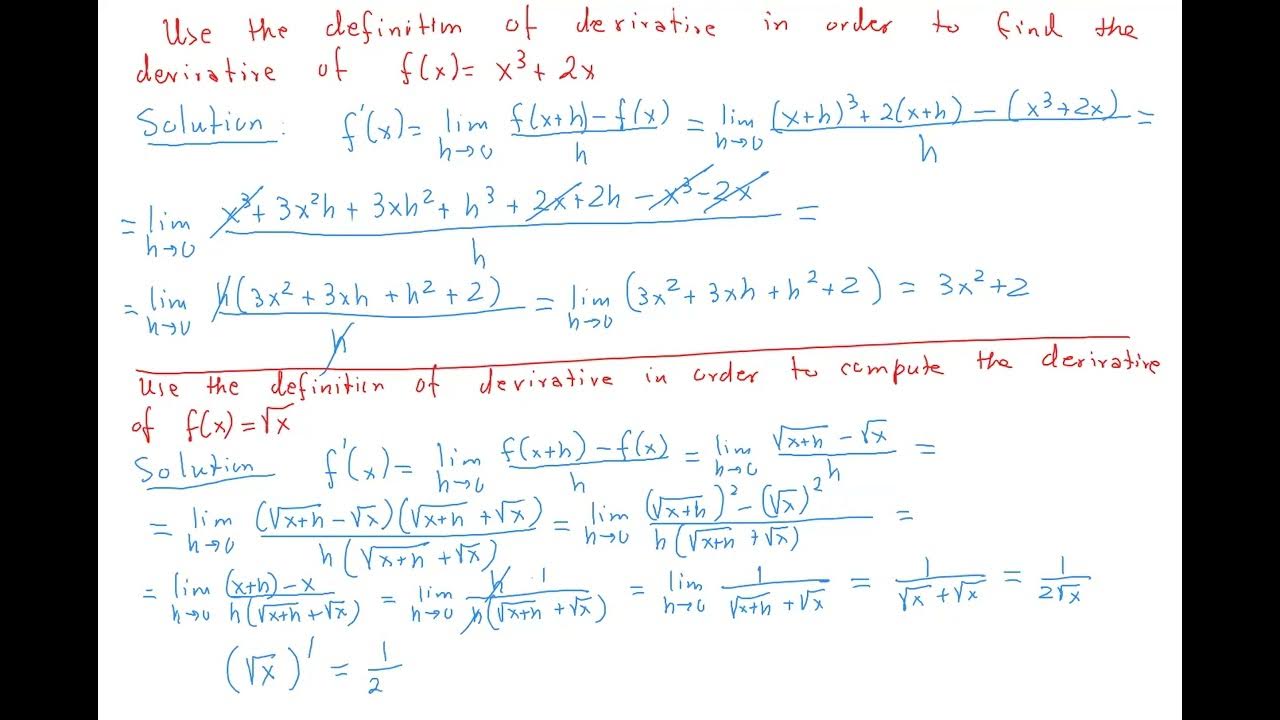 Use the definition of derivative in order to find the
derivative of f(x) = x³ + 2x
Solution: f'(x) = lim h→0 (f(x+h) − f(x))/h = lim h→0 ((x+h)³ + 2(x+h) − (x³+2x))/h =
= lim h→0 (x³ + 3x²h + 3xh² + h³ + 2x + 2h − x³ − 2x)/h =
= lim h→0 h(3x² + 3xh + h² + 2)/h = lim h→0 (3x² + 3xh + h² + 2) = 3x² + 2
Use the definition of derivative in order to compute the derivative
of f(x) = √x
Solution f'(x) = lim h→0 (f(x+h) − f(x))/h = lim h→0 (√(x+h) − √x)/h =
= lim h→0 (√(x+h) − √x)(√(x+h) + √x)/(h(√(x+h) + √x)) = lim h→0 ((√(x+h))² − (√x)²)/(h(√(x+h) + √x)) =
= lim h→0 ((x+h) − x)/(h(√(x+h) + √x)) = lim h→0 h 1/(h(√(x+h) + √x)) = lim h→0 1/(√(x+h) + √x) = 1/(√x + √x) = 1/(2√x)
(√x)' = 1/2